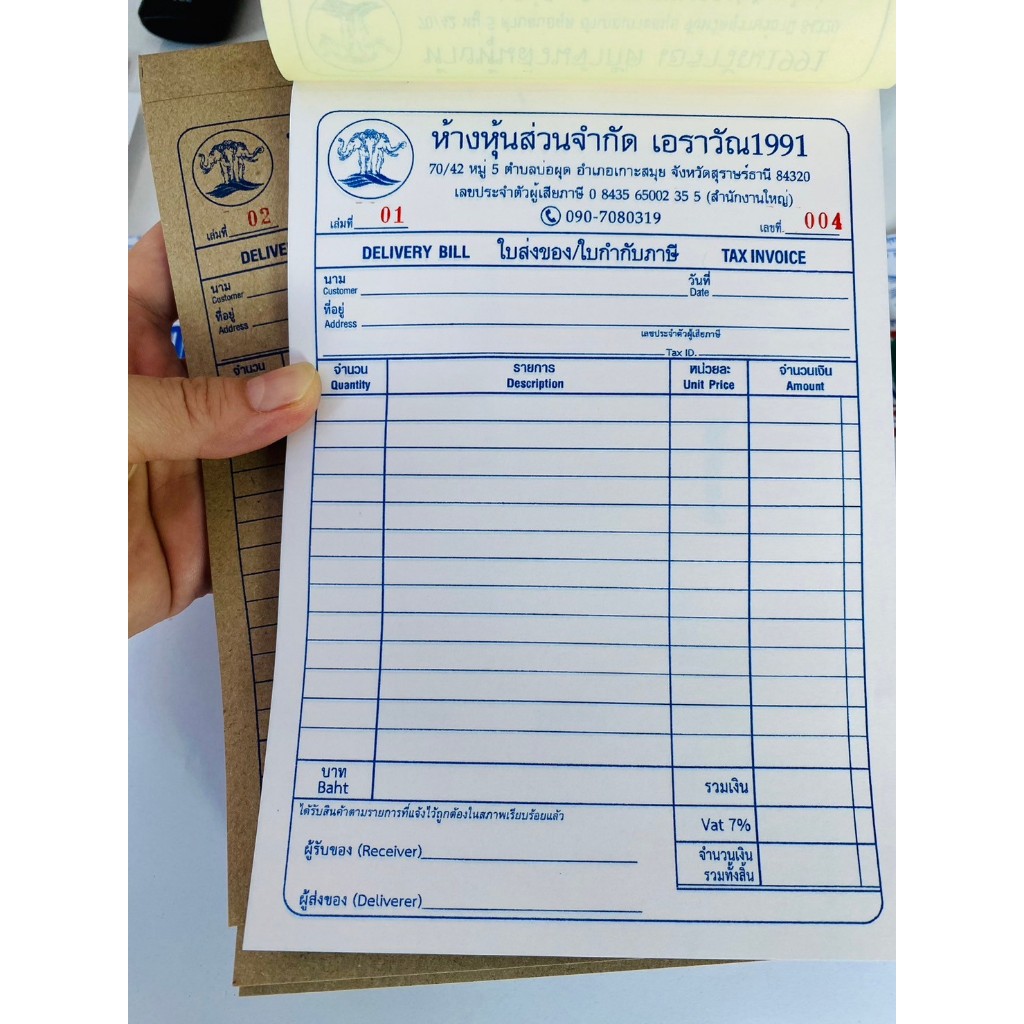 ห้างหุ้นส่วนจำกัด เอราวัณ1991
70/42 หมู่ 5 ตำบลบ่อผุด อำเภอเกาะสมุย จังหวัดสุราษร์ธานี 84320
เลขประจำตัวผู้เสียภาษี 0 8435 65002 35 5 (สำนักงานใหญ่)
090-7080319
เล่มที่ 01
เลขที่. 004
DELIVERY BILL ใบส่งของ/ใบกำกับภาษี TAX INVOICE
นาม วันที่
Customer Date
ที่อยู่
Address
เลขประจำตัวผู้เสียภาษี
Tax ID.
จำนวน รายการ หน่วยละ จำนวนเงิน
Quantity Description Unit Price Amount
บาท
Baht
รวมเงิน
ได้รับสินค้าตามรายการที่แจ้งไว้ถูกต้องในสภาพเรียบร้อยแล้ว
Vat 7%
ผู้รับของ (Receiver)
จำนวนเงิน
รวมทั้งสิ้น
ผู้ส่งของ (Deliverer)
เล่มที่ 02
นาม
Customer
ที่อยู่
Address
จำนวน